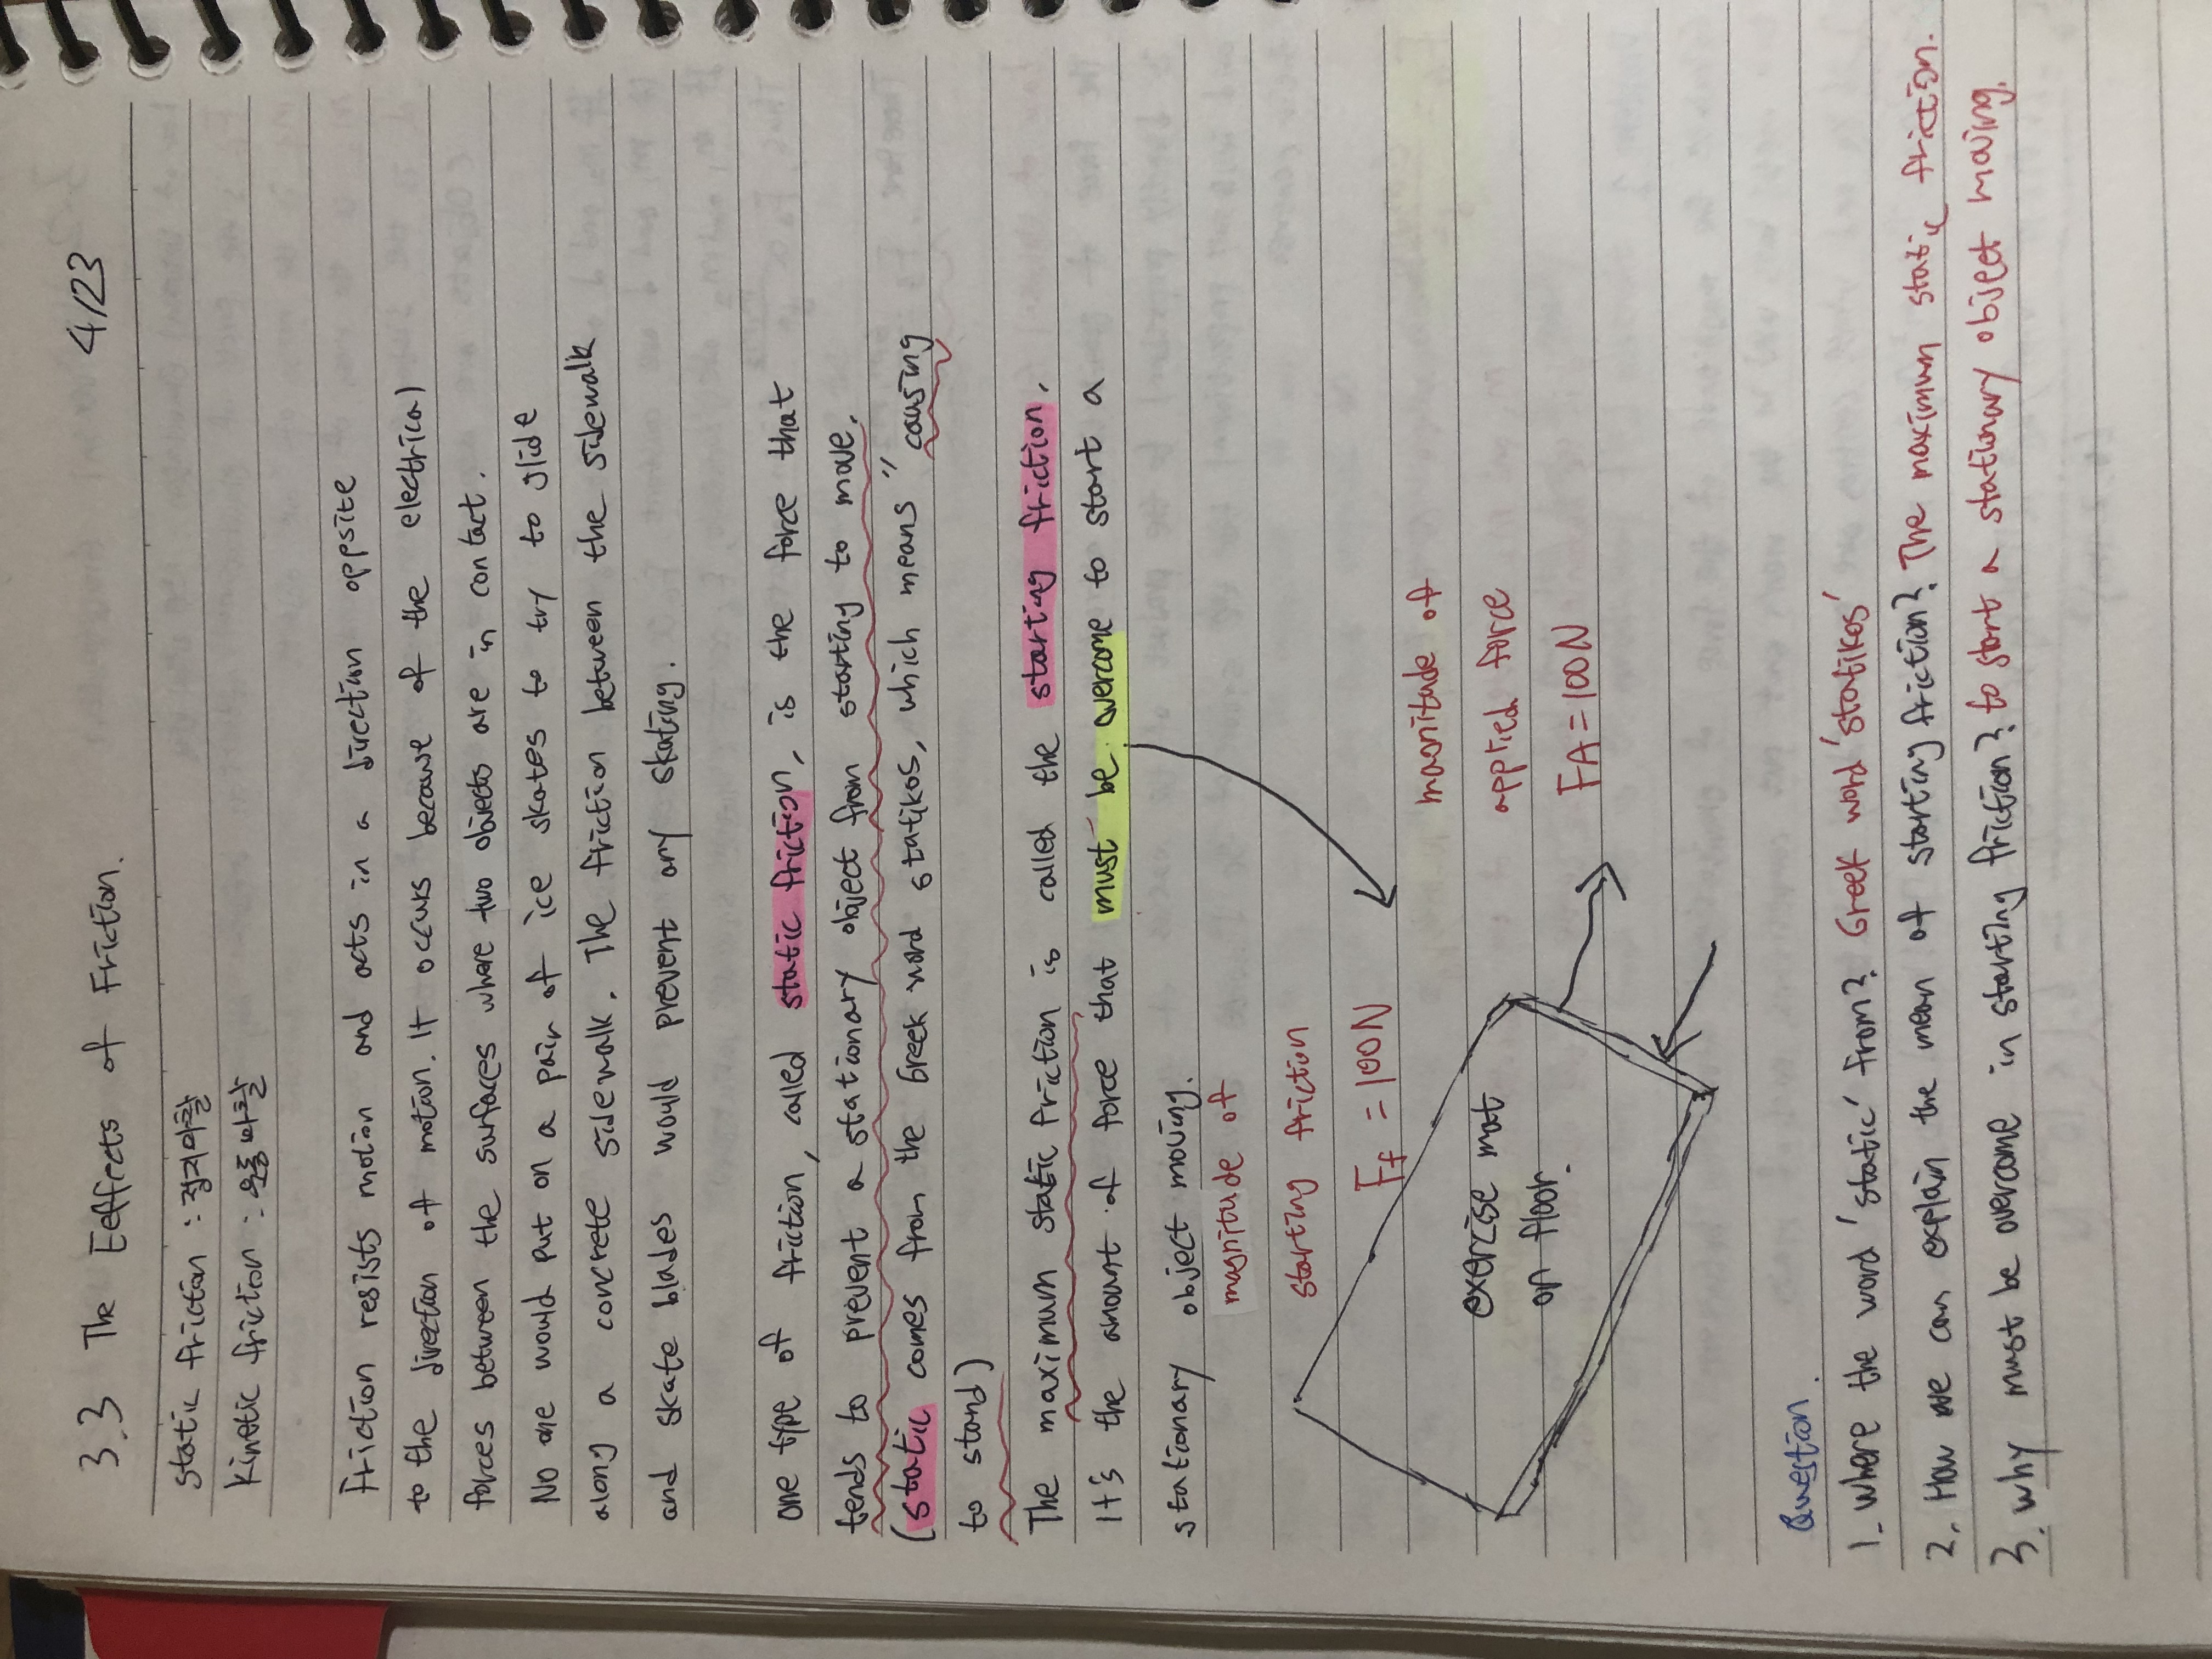 3.3 The Eeffects of Friction. 4/23
static friction : 정지마찰
kinetic friction : 운동마찰
Friction resists motion and acts in a direction oppsite
to the direction of motion. It occurs because of the electrical
forces between the surfaces where two objects are in contact.
No one would put on a pair of ice skates to try to glide
along a concrete sidewalk. The friction between the sidewalk
and skate blades would prevent any skating.
one type of friction, called static friction, is the force that
tends to prevent a stationary object from starting to move.
(static comes from the Greek word statikos, which means "causing
to stand)
The maximum static friction is called the starting friction.
It's the amount of force that must be overcome to start a
stationary object moving.
magnitude of
starting friction
Ff = 100N
magnitude of
applied force
FA = 100N
exercise mat
on floor.
Question.
1. where the word 'static' from? Greek word 'statikos'
2. How we can explain the mean of starting friction? The maximum static friction.
3. why must be overcome in starting friction? to start a stationary object moving.